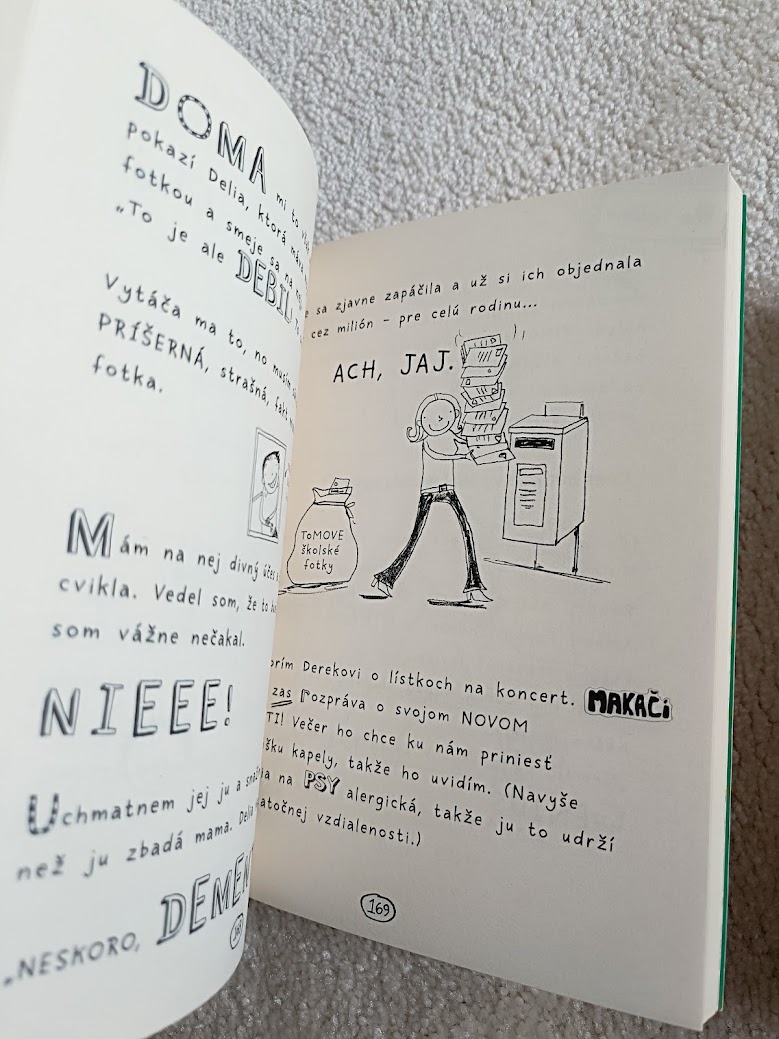 DOMA mi to
pokazí Delia, ktorá
fotkou a smeje sa na
„To je ale DEBIL!
Vytáča ma to, no musím
PRÍŠERNÁ, strašná, fakt
fotka.
Mám na nej divný účes
cvikla. Vedel som, že to
som vážne nečakal.
NIEEE!
Uchmatnem jej ju a
než ju zbadá mama. Delia
„NESKORO,
sa zjavne zapáčila a už si ich objednala
cez milión – pre celú rodinu...
ACH, JAJ.
ToMOVE
školské
fotky
Derekovi o lístkoch na koncert. MAKAČi
zas rozpráva o svojom NOVOM
Večer ho chce ku nám priniesť
kapely, takže ho uvidím. (Navyše
na PSY alergická, takže ju to udrží
vzdialenosti.)
169